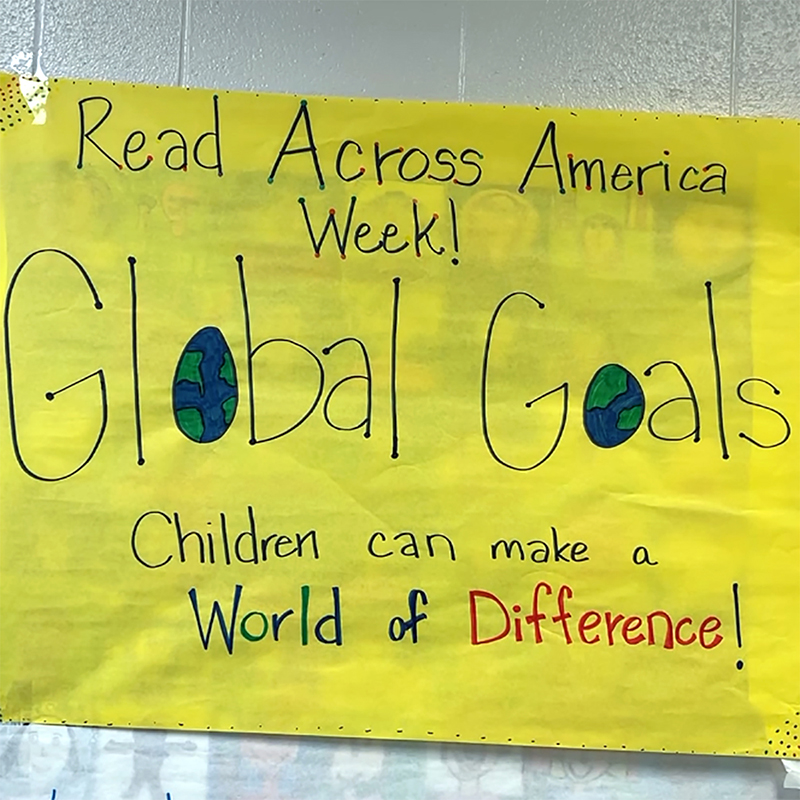 Read Across America
Week!
Global Goals
Children can make a
World of Difference!